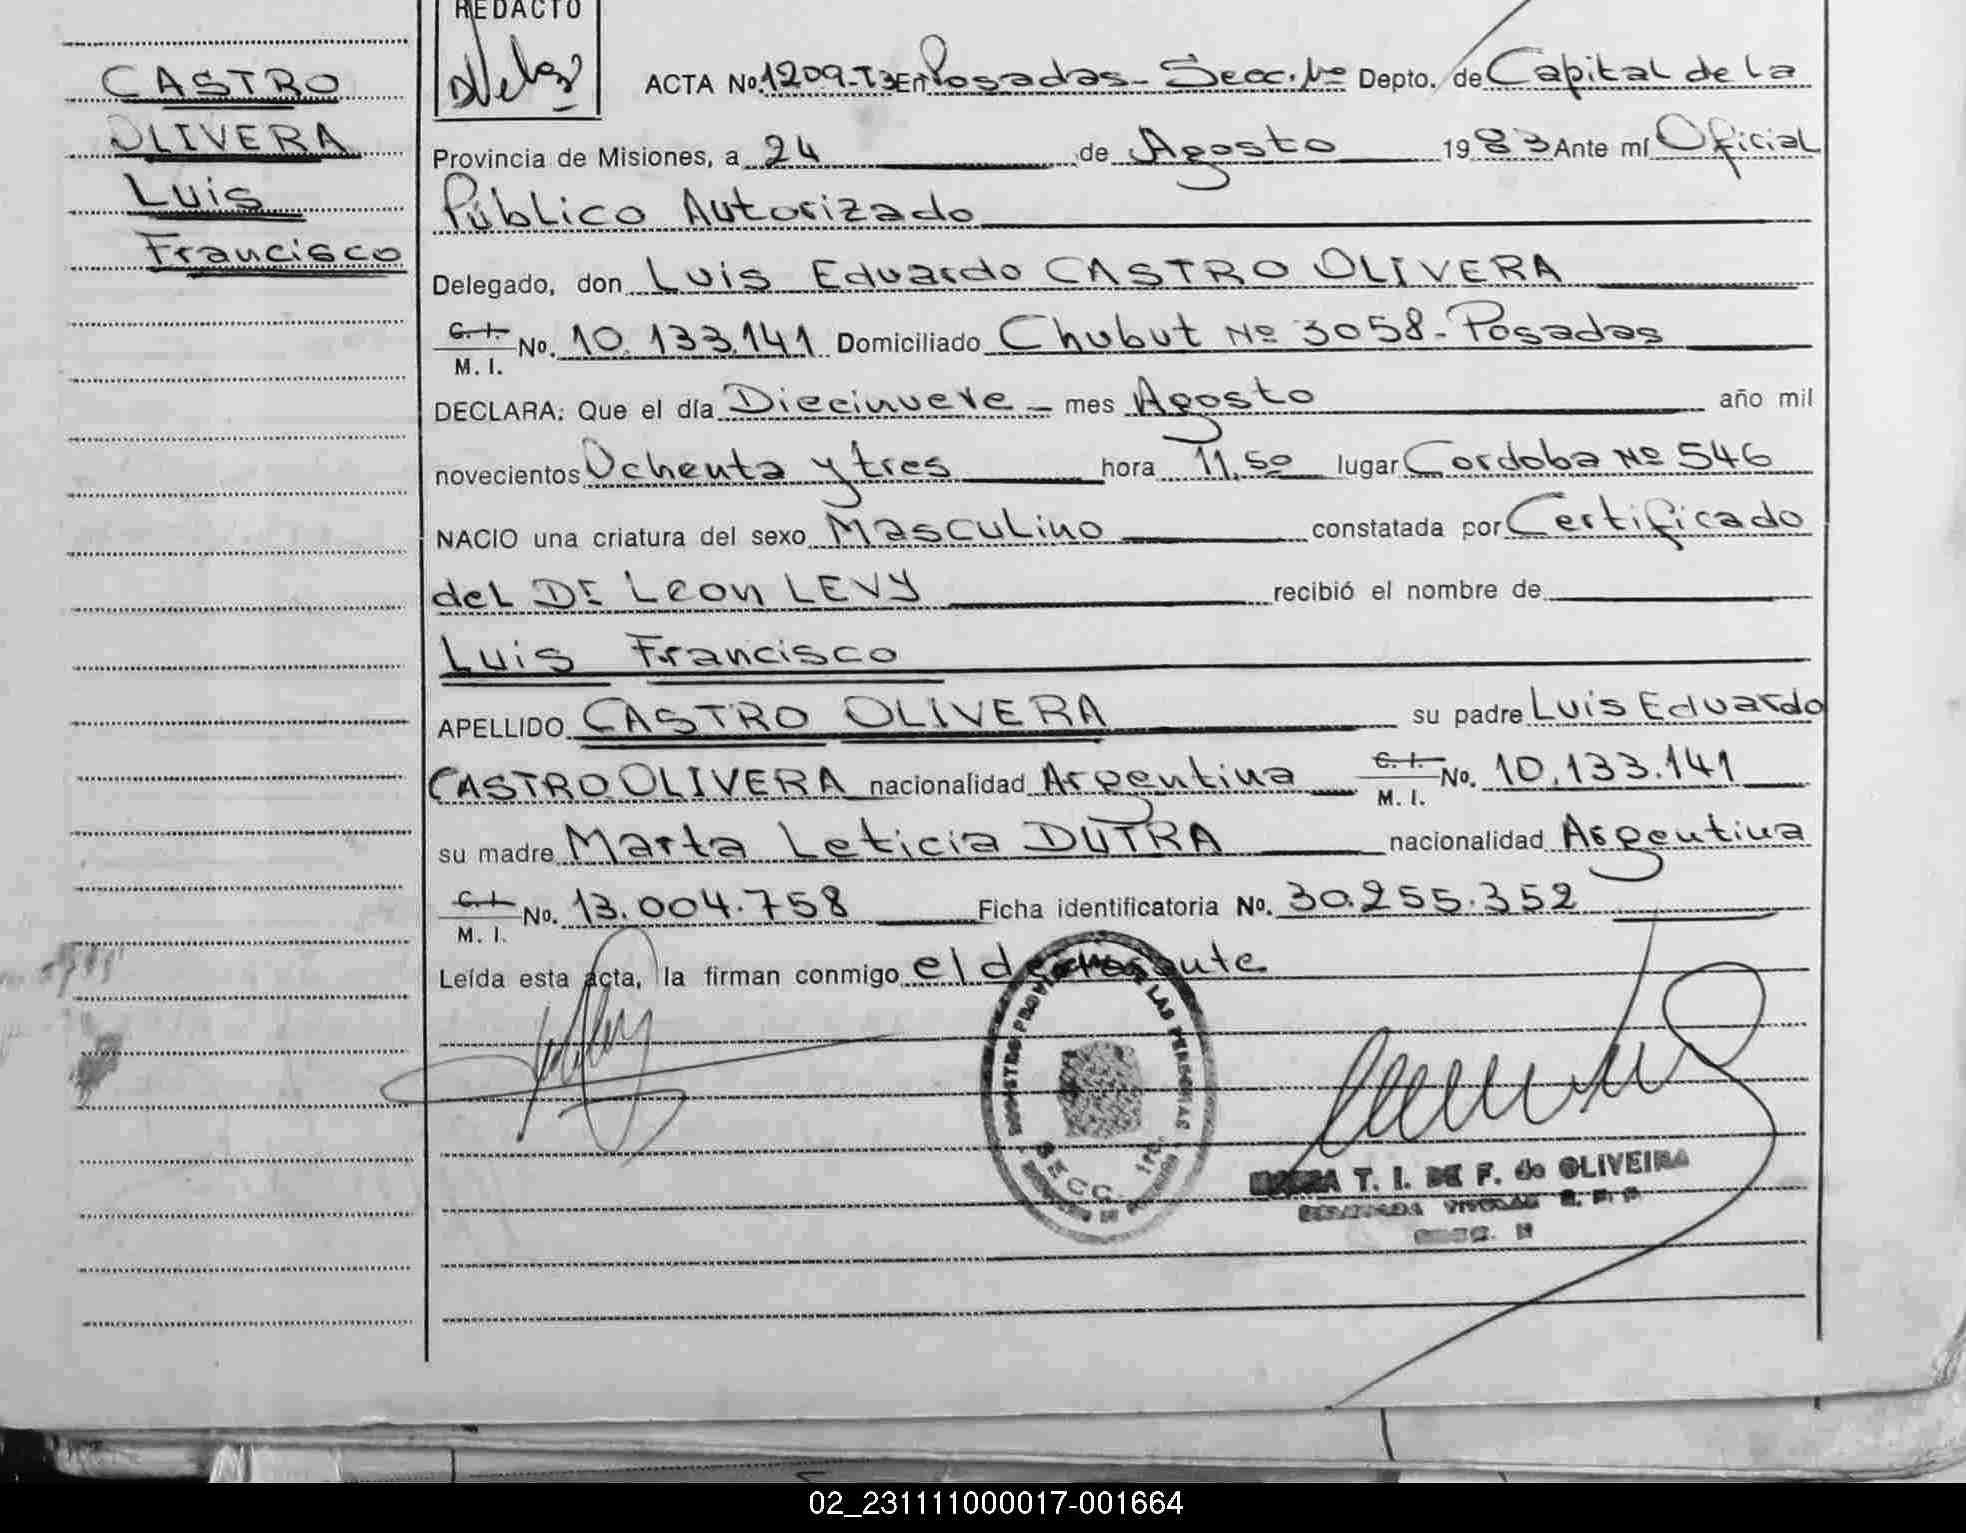 REDACTO
CASTRO
OLIVERA
Luis
Francisco
ACTA No. 1209-T3 En Posadas - Secc. 1ª Depto. de Capital de la
Provincia de Misiones, a 24 de Agosto 1983 Ante mí Oficial
Público Autorizado
Delegado, don Luis Eduardo CASTRO OLIVERA
C. I. M. I. No. 10.133.141 Domiciliado Chubut Nº 3058 - Posadas
DECLARA: Que el día Diecinueve - mes Agosto año mil
novecientos Ochenta y tres hora 11,50 lugar Cordoba Nº 546
NACIO una criatura del sexo Masculino constatada por Certificado
del Dr Leon LEVY recibió el nombre de
Luis Francisco
APELLIDO CASTRO OLIVERA su padre Luis Eduardo
CASTRO OLIVERA nacionalidad Argentina C. I. M. I. No. 10.133.141
su madre Marta Leticia DUTRA nacionalidad Argentina
C. I. M. I. No. 13.004.758 Ficha identificatoria No. 30.255.352
Leída esta acta, la firman conmigo el declarante
DE LAS PERSONAS
SECC. 1ra.
T. I. DE F. de OLIVEIRA
02_231111000017-001664